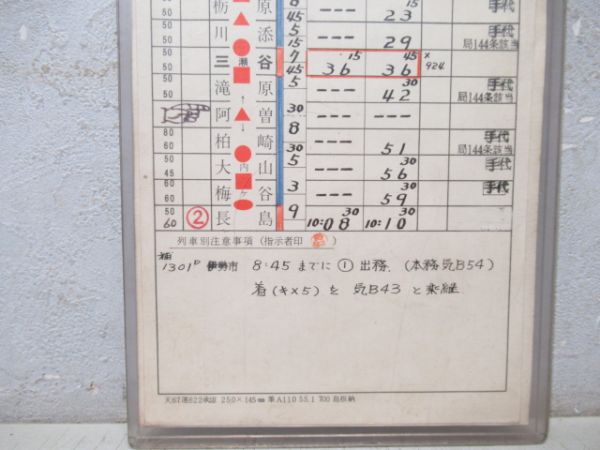 50 栃 原 45 --- 23 15 手代
50 川 添 5 15 --- 29 局144条該当
50 50 三 瀬 谷 7 45 36 15 36 45 × 924
50 50 滝 原 5 --- 42 30 手代 局144条該当
阿 曽 30 --- ---
80 60 柏 崎 8 30 --- 51 手代 局144条該当
50 50 大 内 山 5 --- 56 30 手代
45 60 梅 ヶ 谷 3 --- 59 30 手代
50 60 ② 長 島 9 10:08 30 10:10 30
列車別注意事項(指示者印 )
1301D 伊勢市 8:45 までに ① 出務.(本務 気B54)
着(キ×5)を 気B43 と乗継
天67運622承認 250×145㎜ 集A110 55.1 700 島根納